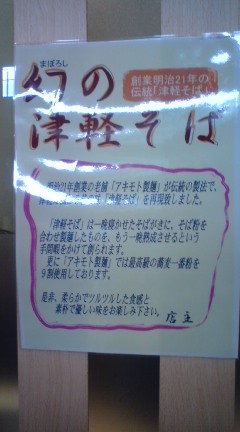 まぼろし
幻の
創業明治21年の
伝統「津軽そば」
津軽そば
明治21年創業の老舗「アキモト製麺」が伝統の製法で、
「津軽そば」を再現致しました。
「津軽そば」は一晩寝かせたそばがきに、そば粉を
合わせ製麺したものを、もう一晩熟成させるという
手間暇をかけて創られます。
更に「アキモト製麺」では最高級の蕎麦一番粉を
9割使用しております。
是非、柔らかでツルツルした食感と
素朴で優しい味をお楽しみ下さい。
店主